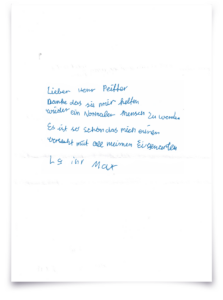 Lieber Herr Peiffer
Danke das sie mir helfen
wieder ein Normaler Mensch zu werden
Es ist so schön das mich einen
versteht mit all meinen Eigenarten
LG ihr Max